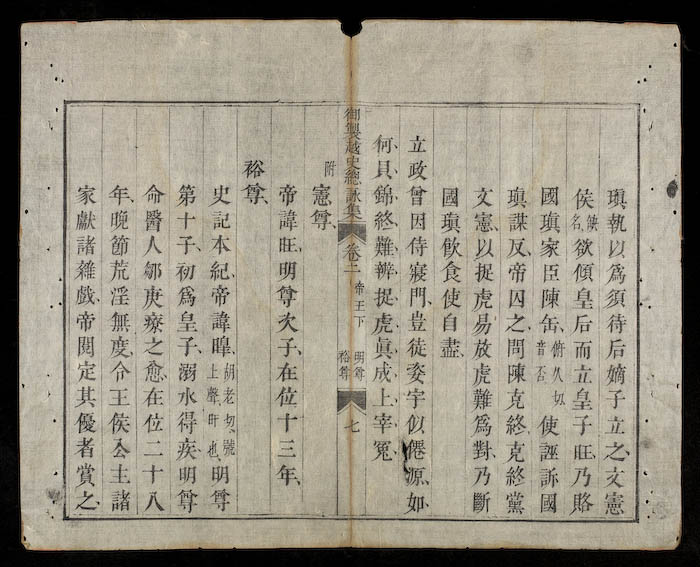 瑱執以為須待后嫡子立之文憲
侯缺名欲傾皇后而立皇子旺乃賂
國瑱家臣陳缶俯久切音否使誣訴國
瑱謀反帝囚之問陳克終克終黨
文憲以捉虎易放虎難為對乃斷
國瑱飲食使自盡
立政曾因侍寢門豈徒姿宇似僊源如
何貝錦終難辨捉虎真成上宰冤
御製越史總詠集
卷二
帝王下
明尊
裕尊
七
附
憲尊
帝諱旺明尊次子在位十三年
裕尊
史記本紀帝諱暭胡老切號上聲旰也明尊
第十子初為皇子溺水得疾明尊
命醫人鄒庚療之愈在位二十八
年晚節荒淫無度令王侯公主諸
家獻諸雜戲帝閱定其優者賞之